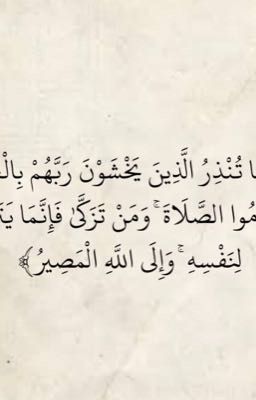 تُنْذِرُ الَّذِينَ يَخْشَوْنَ رَبَّهُمْ
الصَّلَاةَ ۚ وَمَنْ تَزَكَّىٰ فَإِنَّمَا
لِنَفْسِهِ ۚ وَإِلَى اللَّهِ الْمَصِيرُ﴾